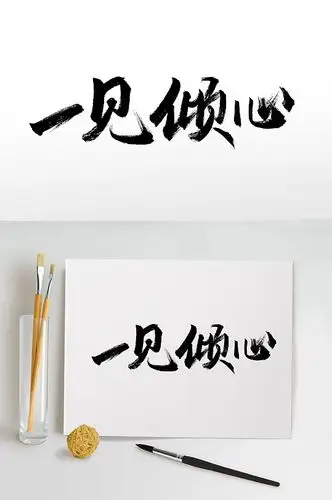 一见倾心
一见倾心